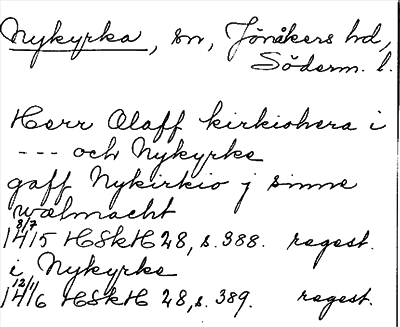 Nykyrka, sn, Jönåkers hd,
Söderm. l.
Herr Olaff kirkiohera i
--- och Nykyrke
gaff Nykirkio j sinne
wælmacht
8/7
1415 HSkH 28, s. 388. regest.
i Nykyrke
12/1
1416 HSkH 28, s. 389. regest.